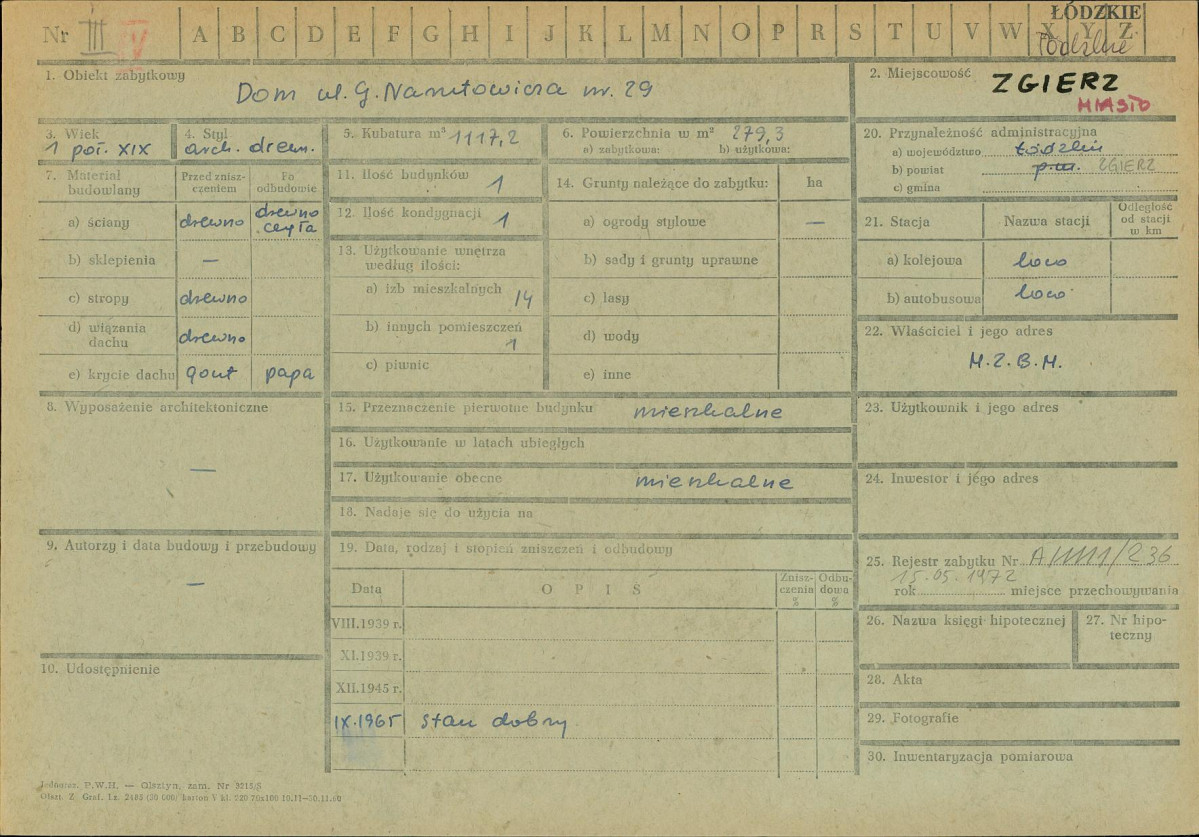 ŁÓDZKIE
Nr III IV A B C D E F G H I J K L M N O P R S T U V W X Y Z
łódzkie
1. Obiekt zabytkowy
Dom ul. G. Narutowicza nr. 29
2. Miejscowość ZGIERZ
MIASTO
3. Wiek
1 poł. XIX
4. Styl
arch. drewn.
5. Kubatura m³ 1117,2
6. Powierzchnia w m² 279,3
a) zabytkowa: b) użytkowa:
20. Przynależność administracyjna
a) województwo Łódzkie
b) powiat ZGIERZ
c) gmina
7. Materiał budowlany
Przed zniszczeniem
Po odbudowie
a) ściany drewno drewno cegła
b) sklepienia —
c) stropy drewno
d) wiązania dachu drewno
e) krycie dachu gont papa
11. Ilość budynków 1
12. Ilość kondygnacji 1
13. Użytkowanie wnętrza
według ilości:
a) izb mieszkalnych 14
b) innych pomieszczeń
1
c) piwnic
14. Grunty należące do zabytku: ha
a) ogrody stylowe —
b) sady i grunty uprawne
c) lasy
d) wody
e) inne
21. Stacja Nazwa stacji Odległość od stacji w km
a) kolejowa loco
b) autobusowa loco
22. Właściciel i jego adres
M.Z.B.M.
8. Wyposażenie architektoniczne
—
15. Przeznaczenie pierwotne budynku mieszkalne
16. Użytkowanie w latach ubiegłych
17. Użytkowanie obecne mieszkalne
18. Nadaje się do użycia na
23. Użytkownik i jego adres
24. Inwestor i jego adres
9. Autorzy i data budowy i przebudowy
—
19. Data, rodzaj i stopień zniszczeń i odbudowy
Data OPIS Zniszczenia % Odbudowa %
VIII.1939 r.
XI.1939 r.
XII.1945 r.
IX.1965 stan dobry
25. Rejestr zabytku Nr A/ /236
15.05.1972
rok miejsce przechowywania
26. Nazwa księgi hipotecznej
27. Nr hipoteczny
10. Udostępnienie
28. Akta
29. Fotografie
30. Inwentaryzacja pomiarowa
P.W.H. — Olsztyn, zam. Nr
Olszt. Z. Graf.